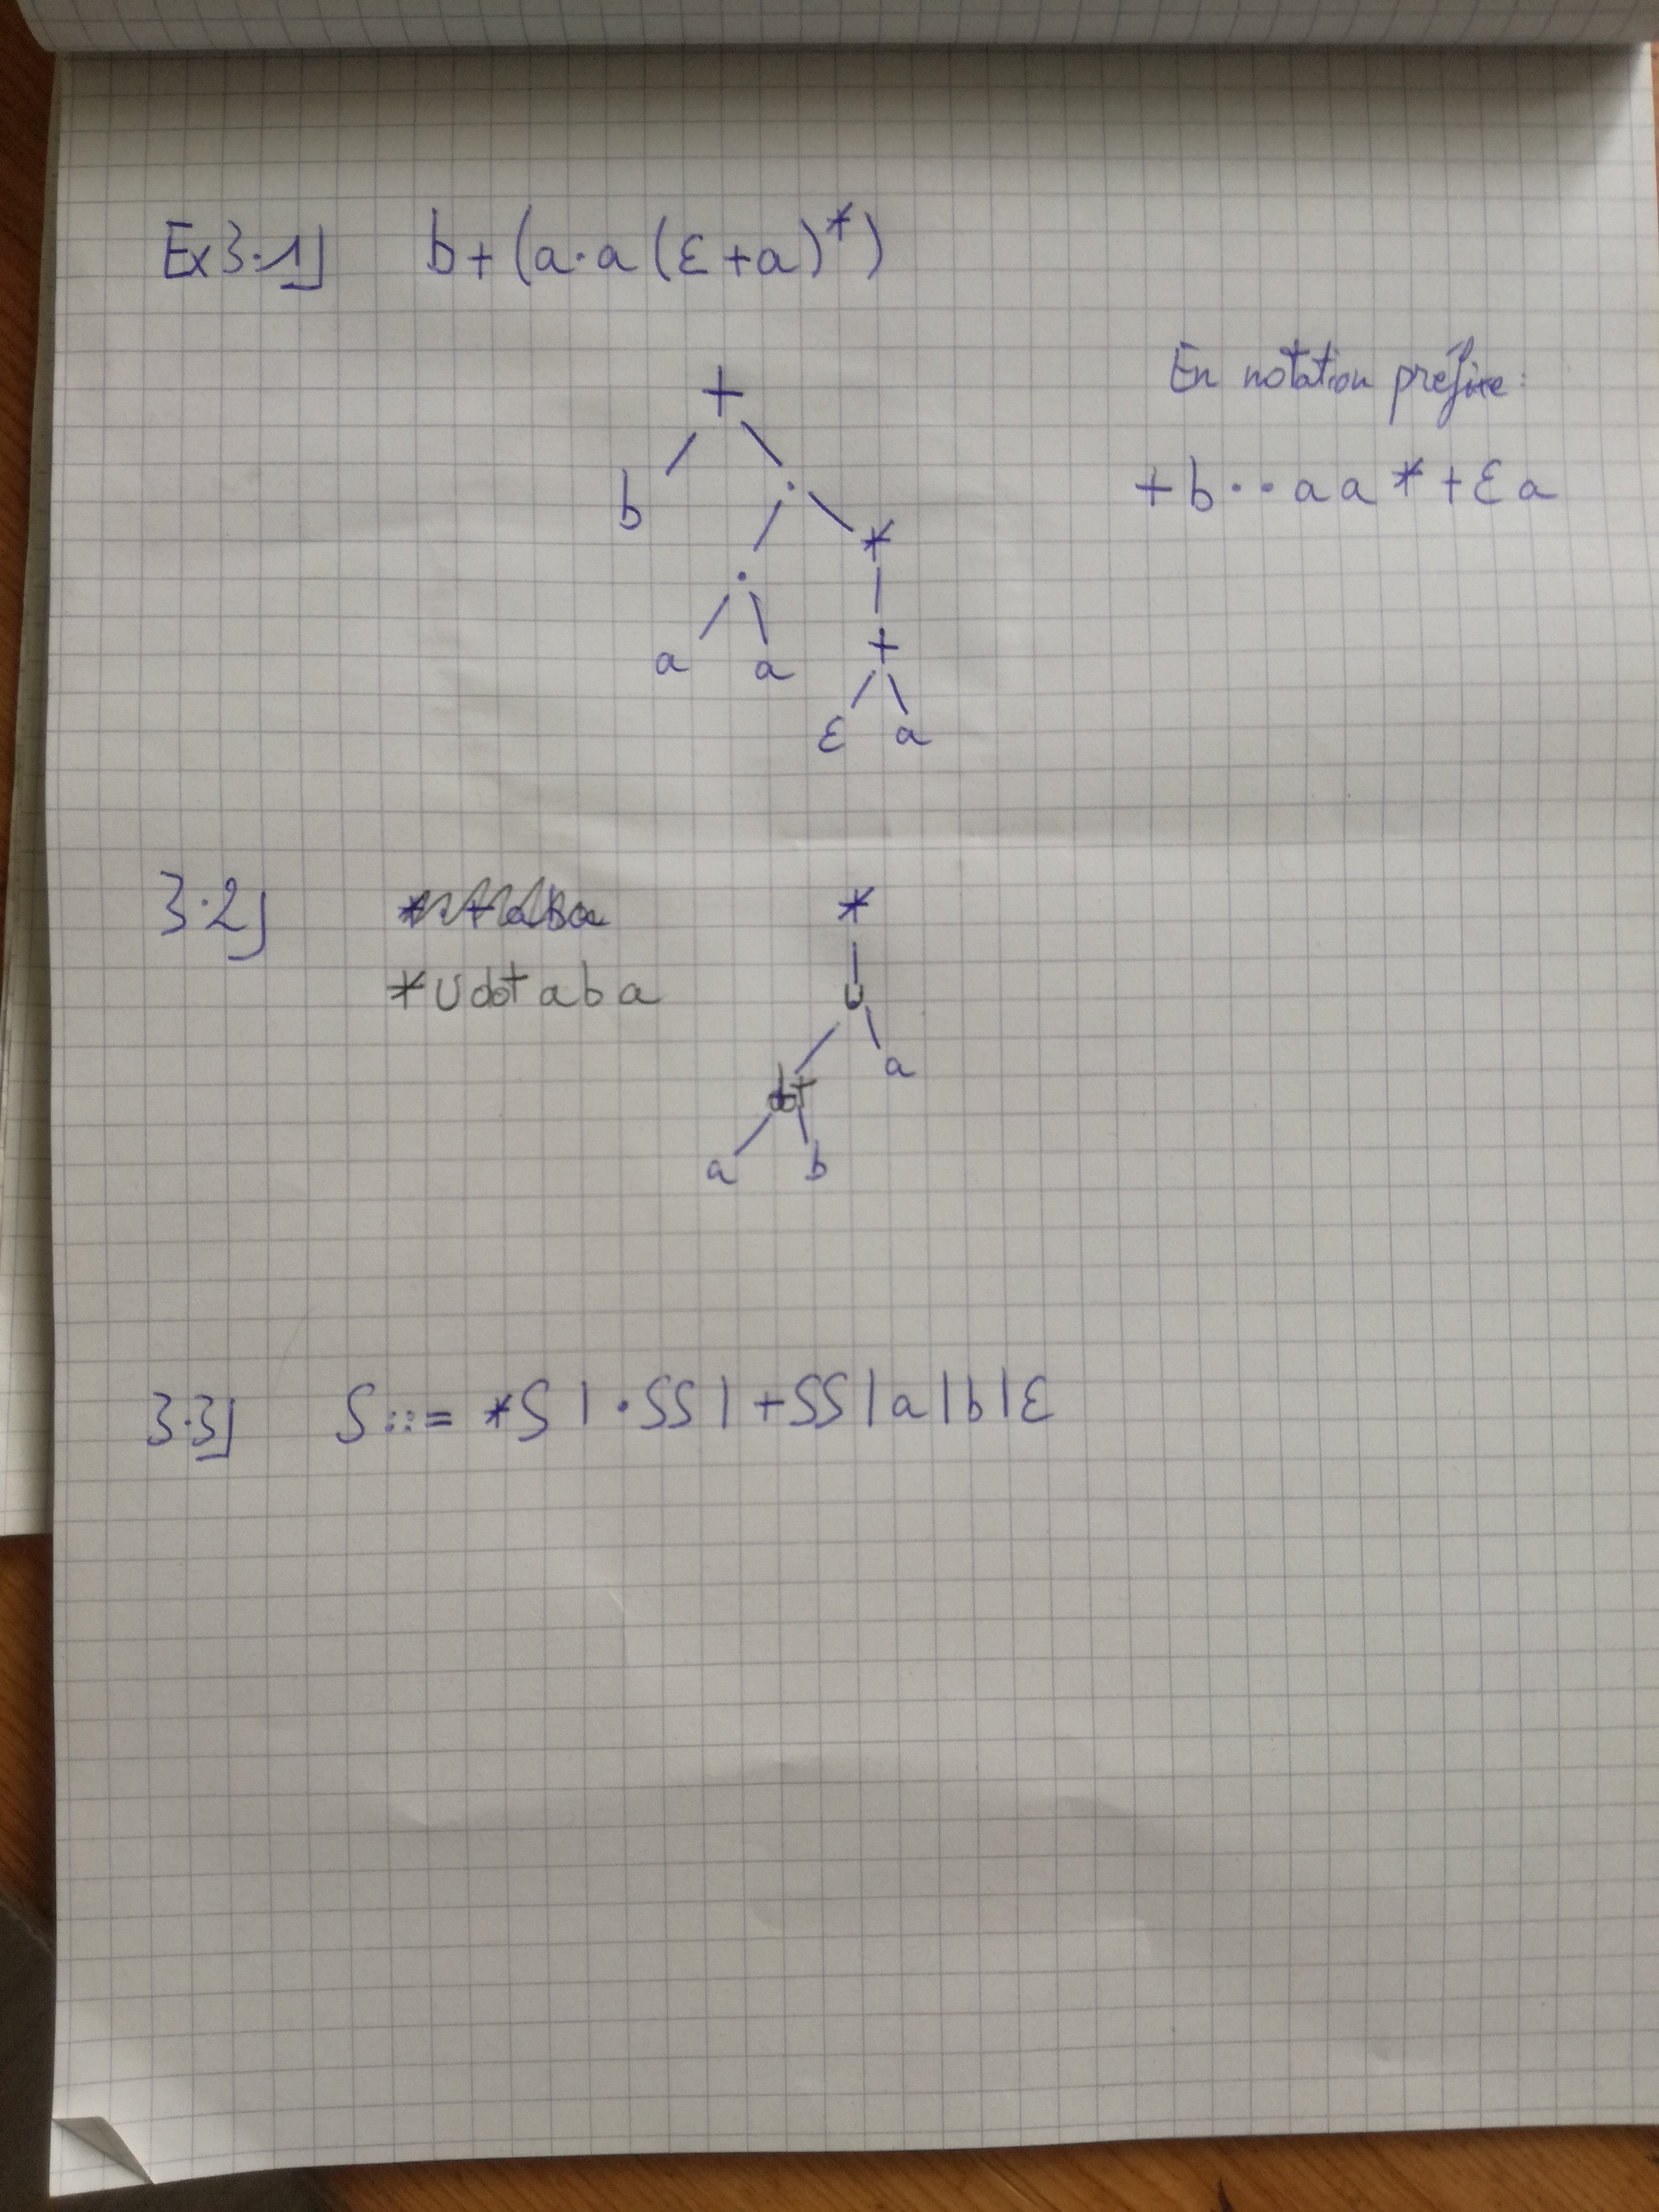 Ex 3.1) b+(a·a(ε+a)*)
En notation préfixe:
+b··aa*+εa
+
b ·
· *
a a +
ε a
3.2)
*Udot a b a
*
U
dot a
a b
3.3) S::= *S | ·SS | +SS | a | b | ε